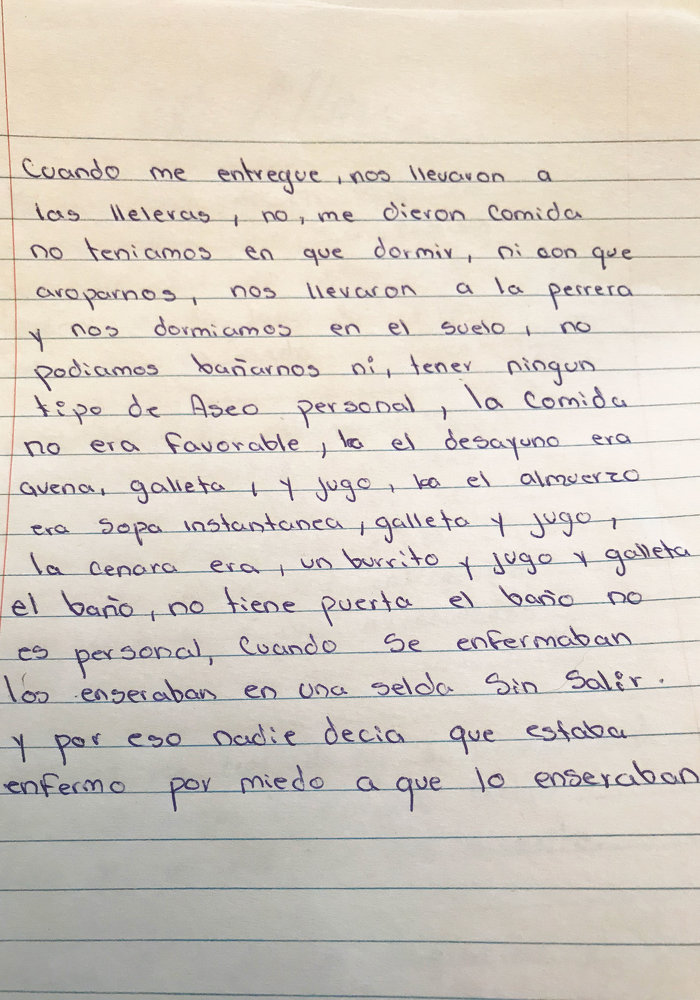 Cuando me entregue, nos llevaron a
las lleleras, no, me dieron comida
no teniamos en que dormir, ni con que
aroparnos, nos llevaron a la perrera
y nos dormiamos en el suelo, no
podiamos bañarnos ni, tener ningun
tipo de Aseo personal, la comida
no era favorable, el desayuno era
avena, galleta, y jugo, el almuerzo
era sopa instantanea, galleta y jugo,
la cenara era, un burrito y jugo y galleta
el baño, no tiene puerta el baño no
es personal, Cuando se enfermaban
los enseraban en una selda sin salir.
y por eso nadie decia que estaba
enfermo por miedo a que lo enseraban